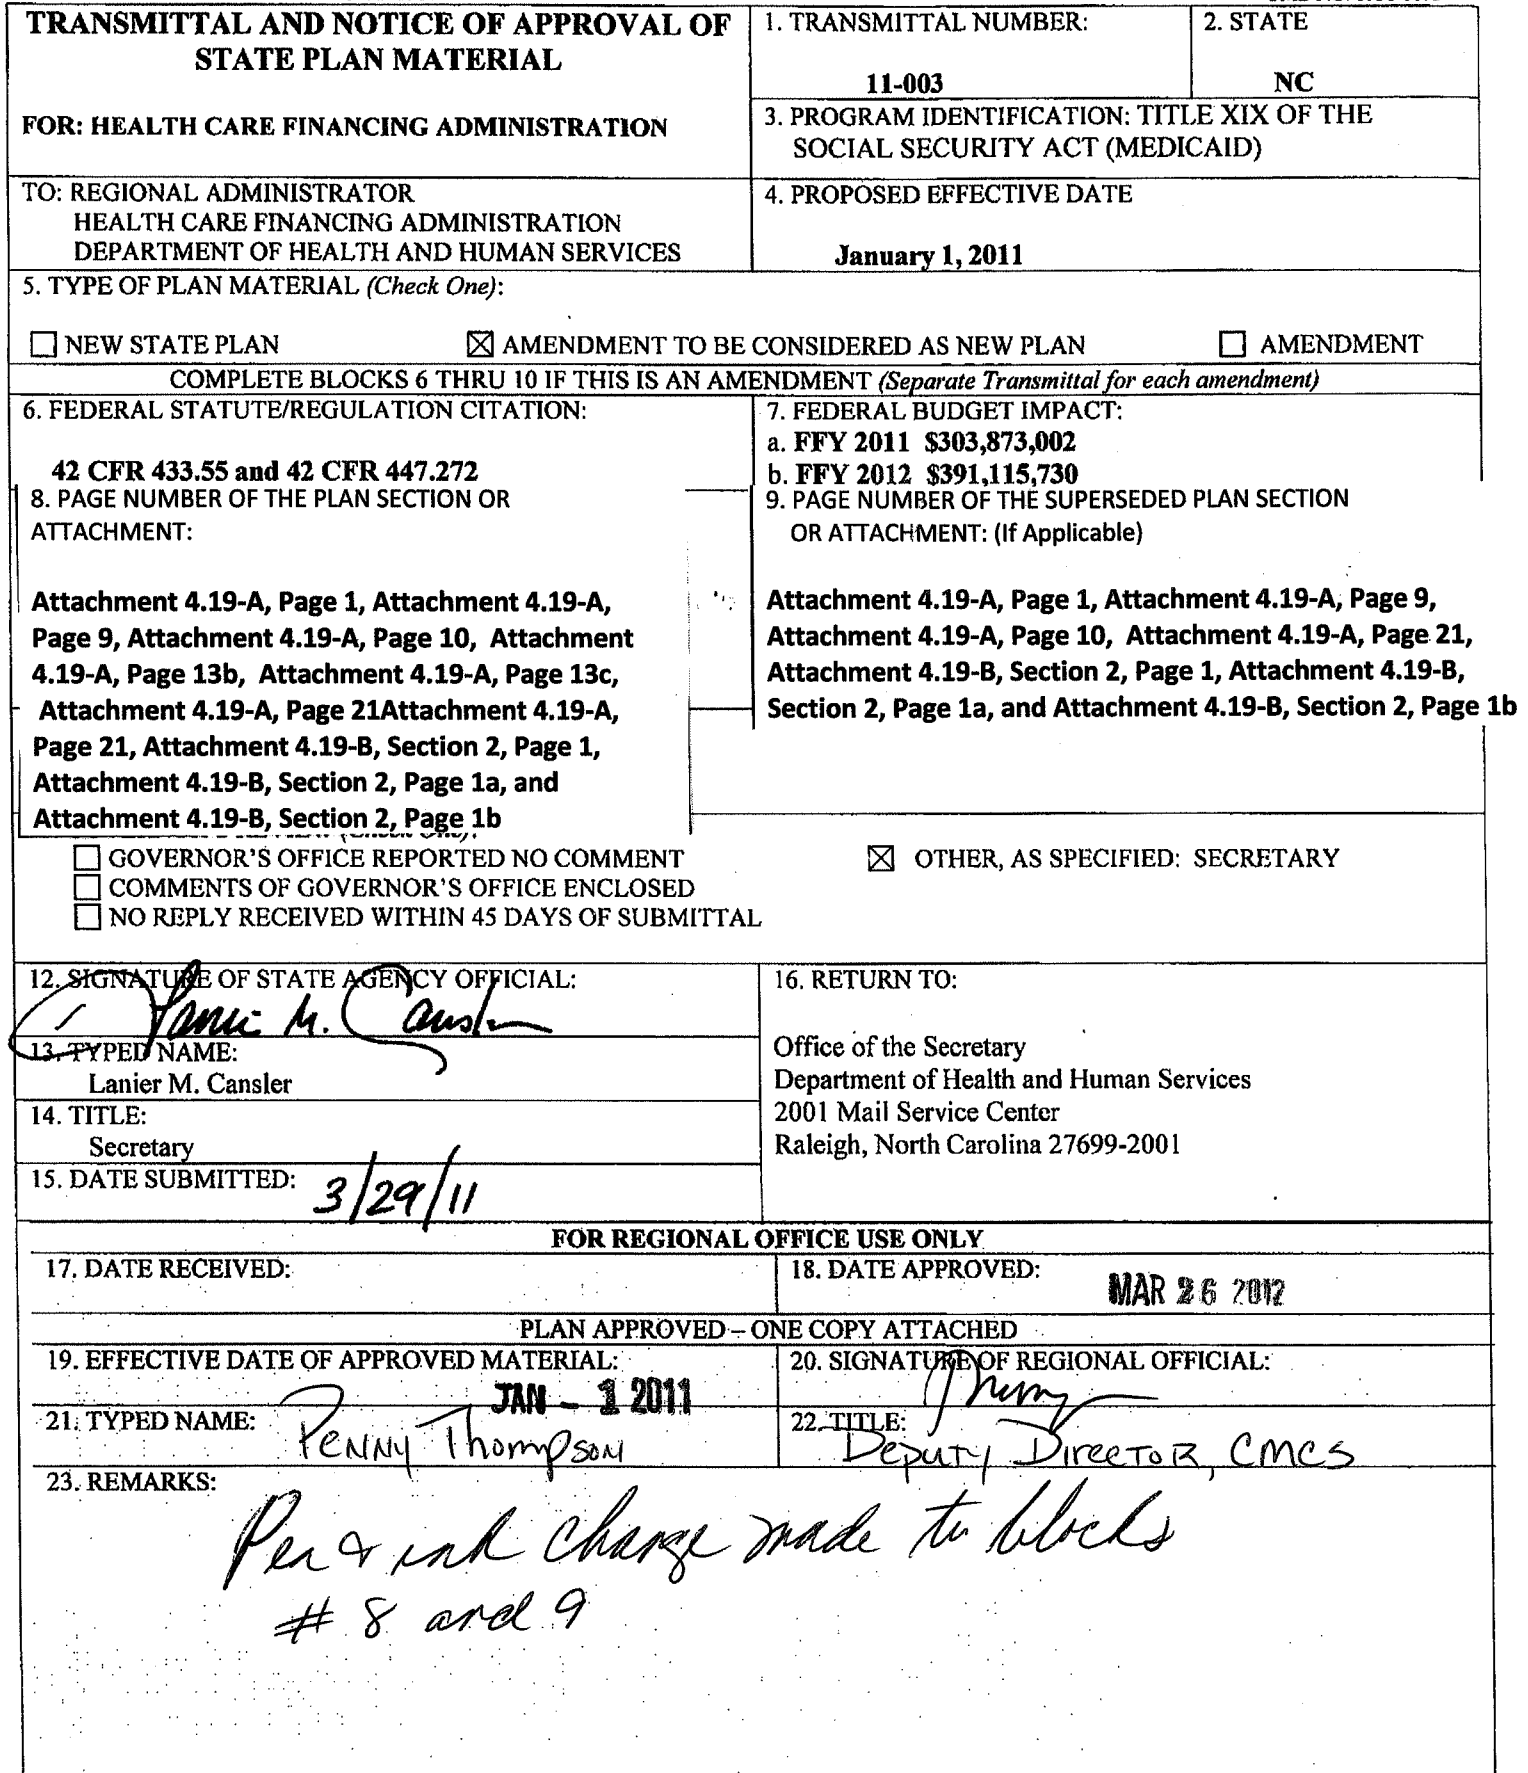 TRANSMITTAL AND NOTICE OF APPROVAL OF
STATE PLAN MATERIAL
FOR: HEALTH CARE FINANCING ADMINISTRATION
1. TRANSMITTAL NUMBER:
11-003
2. STATE
NC
3. PROGRAM IDENTIFICATION: TITLE XIX OF THE
SOCIAL SECURITY ACT (MEDICAID)
TO: REGIONAL ADMINISTRATOR
HEALTH CARE FINANCING ADMINISTRATION
DEPARTMENT OF HEALTH AND HUMAN SERVICES
4. PROPOSED EFFECTIVE DATE
January 1, 2011
5. TYPE OF PLAN MATERIAL (Check One):
☐ NEW STATE PLAN ☒ AMENDMENT TO BE CONSIDERED AS NEW PLAN ☐ AMENDMENT
COMPLETE BLOCKS 6 THRU 10 IF THIS IS AN AMENDMENT (Separate Transmittal for each amendment)
6. FEDERAL STATUTE/REGULATION CITATION:
42 CFR 433.55 and 42 CFR 447.272
7. FEDERAL BUDGET IMPACT:
a. FFY 2011 $303,873,002
b. FFY 2012 $391,115,730
8. PAGE NUMBER OF THE PLAN SECTION OR
ATTACHMENT:
Attachment 4.19-A, Page 1, Attachment 4.19-A,
Page 9, Attachment 4.19-A, Page 10, Attachment
4.19-A, Page 13b, Attachment 4.19-A, Page 13c,
Attachment 4.19-A, Page 21Attachment 4.19-A,
Page 21, Attachment 4.19-B, Section 2, Page 1,
Attachment 4.19-B, Section 2, Page 1a, and
Attachment 4.19-B, Section 2, Page 1b
9. PAGE NUMBER OF THE SUPERSEDED PLAN SECTION
OR ATTACHMENT: (If Applicable)
Attachment 4.19-A, Page 1, Attachment 4.19-A, Page 9,
Attachment 4.19-A, Page 10, Attachment 4.19-A, Page 21,
Attachment 4.19-B, Section 2, Page 1, Attachment 4.19-B,
Section 2, Page 1a, and Attachment 4.19-B, Section 2, Page 1b
☐ GOVERNOR'S OFFICE REPORTED NO COMMENT
☐ COMMENTS OF GOVERNOR'S OFFICE ENCLOSED
☐ NO REPLY RECEIVED WITHIN 45 DAYS OF SUBMITTAL
☒ OTHER, AS SPECIFIED: SECRETARY
12. SIGNATURE OF STATE AGENCY OFFICIAL:
Lanier M. Cansler
13. TYPED NAME:
Lanier M. Cansler
14. TITLE:
Secretary
15. DATE SUBMITTED: 3/29/11
16. RETURN TO:
Office of the Secretary
Department of Health and Human Services
2001 Mail Service Center
Raleigh, North Carolina 27699-2001
FOR REGIONAL OFFICE USE ONLY
17. DATE RECEIVED:
18. DATE APPROVED: MAR 26 2012
PLAN APPROVED – ONE COPY ATTACHED
19. EFFECTIVE DATE OF APPROVED MATERIAL:
JAN - 1 2011
20. SIGNATURE OF REGIONAL OFFICIAL:
21. TYPED NAME: Penny Thompson
22. TITLE:
Deputy Director, CMCS
23. REMARKS:
Pen & ink change made to blocks
# 8 and 9